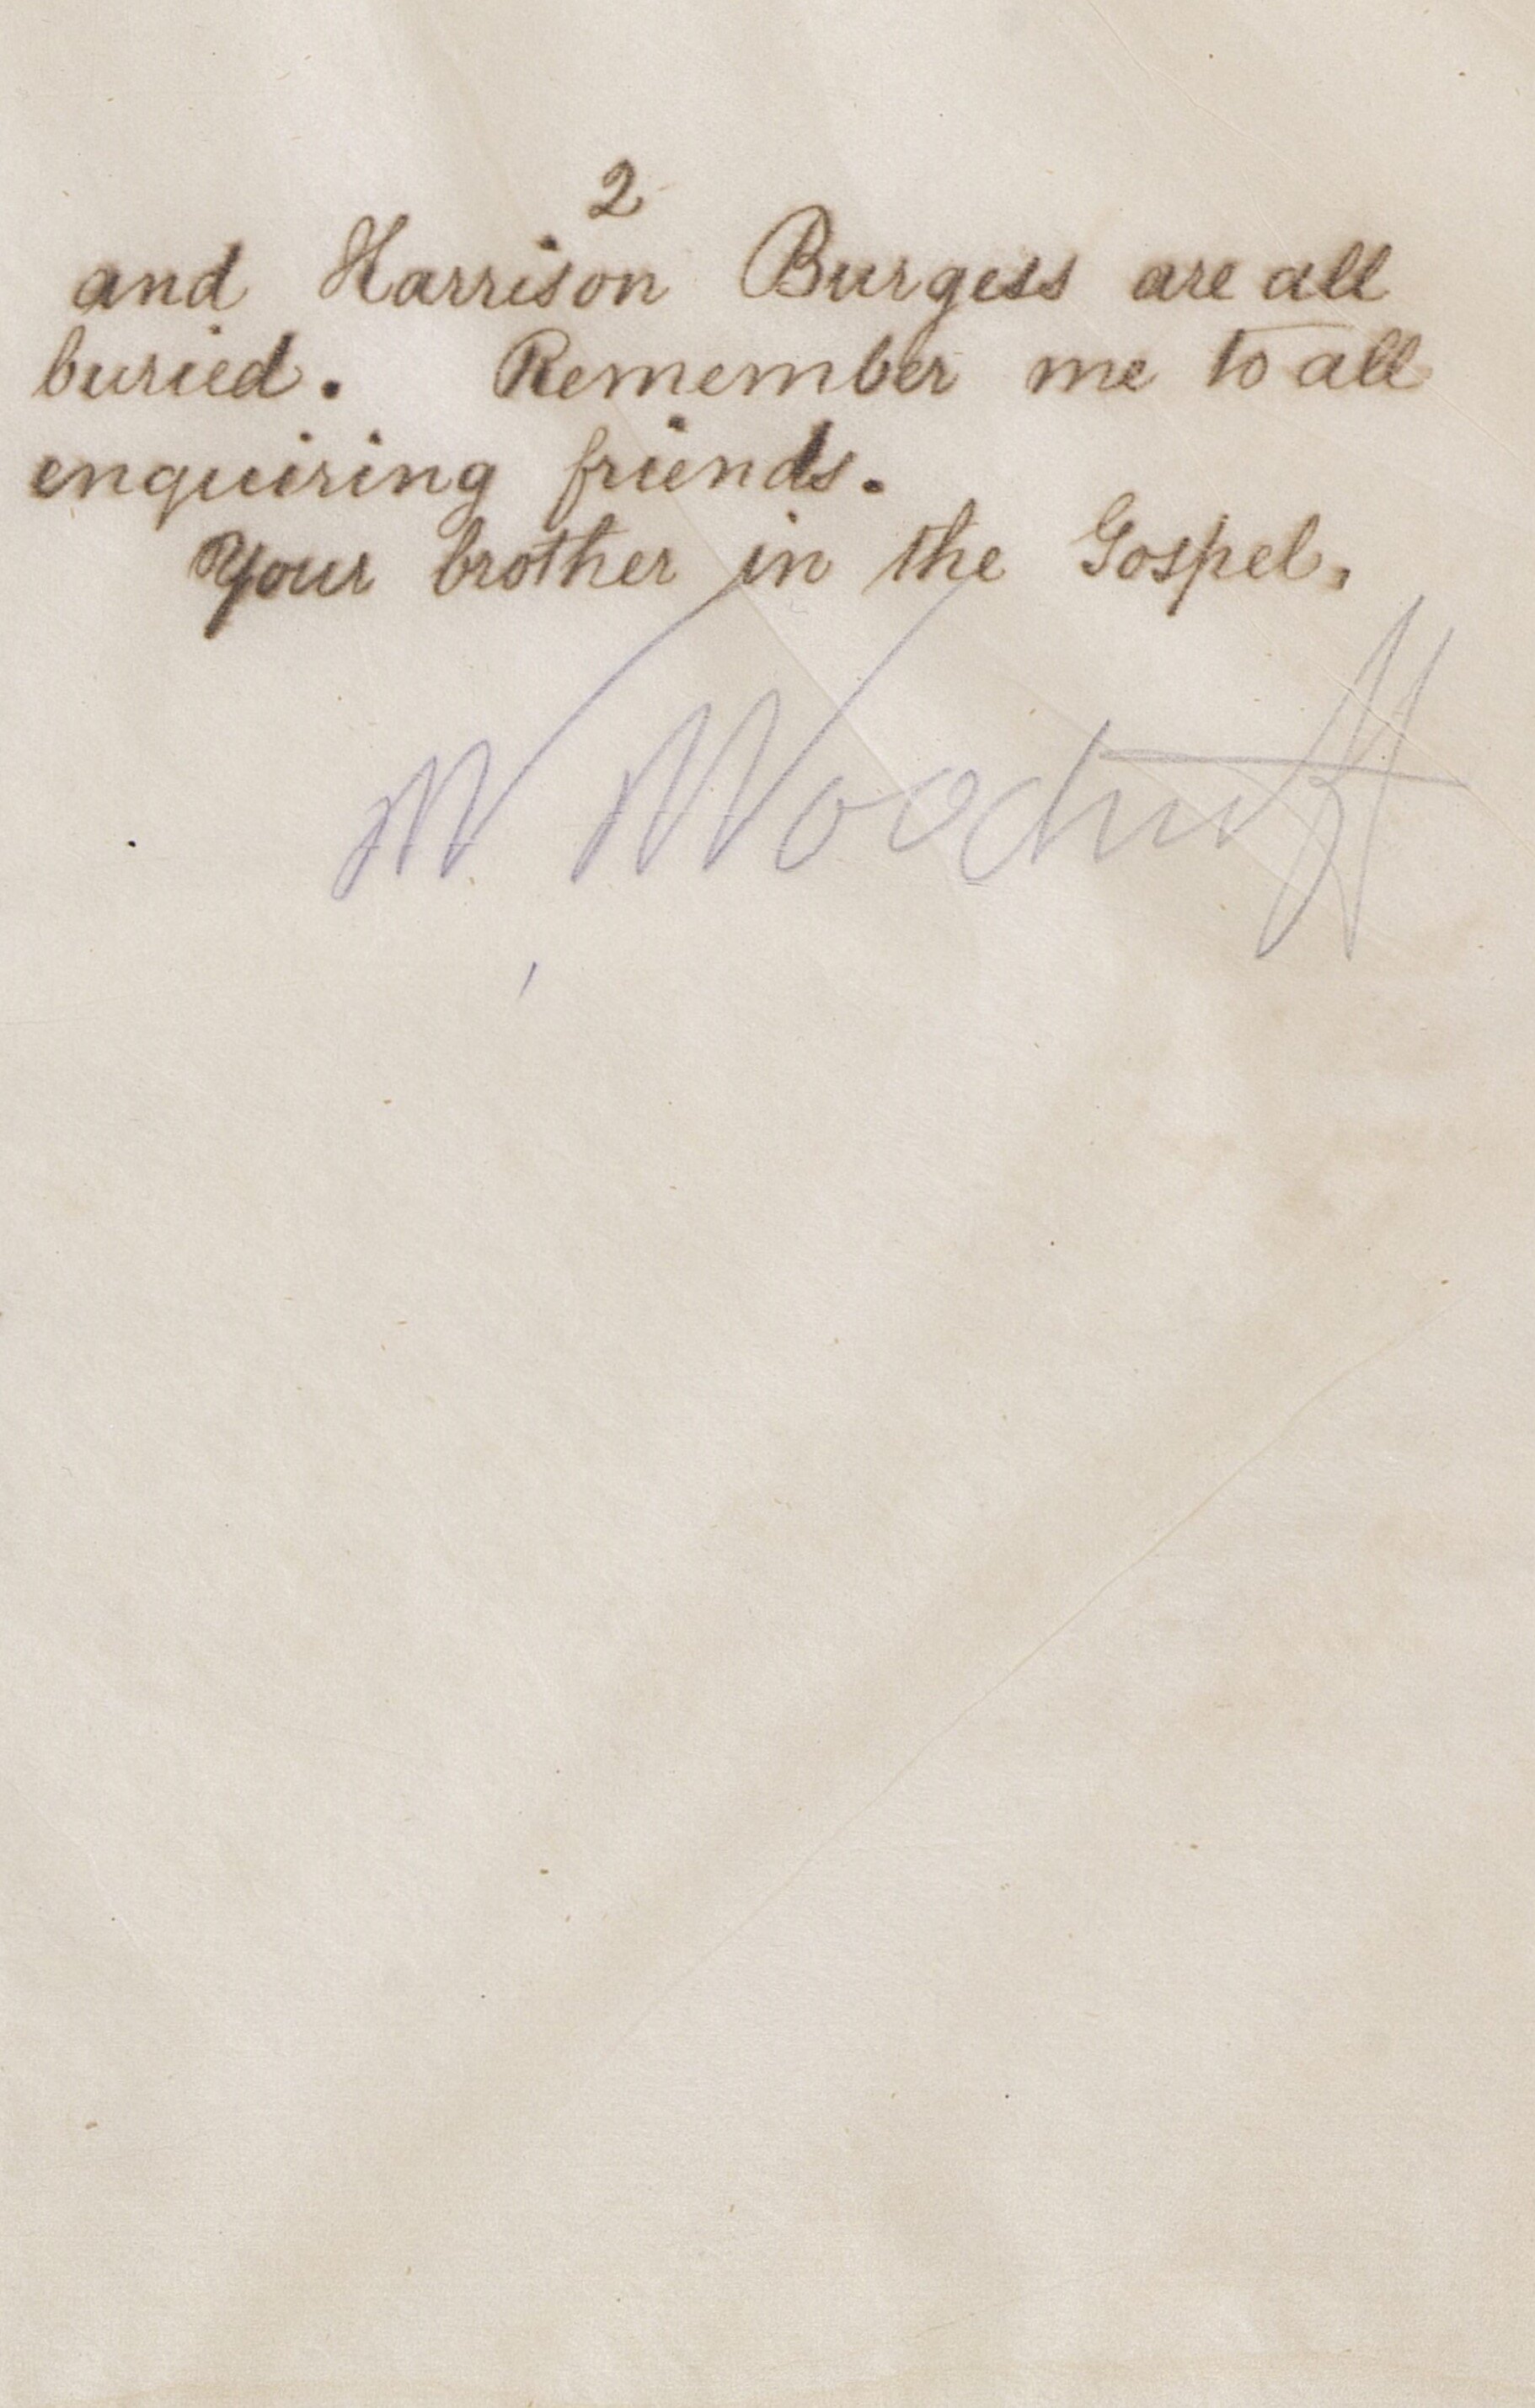 2
and Harrison Burgess are all
buried. Remember me to all
enquiring friends.
Your brother in the Gospel,
W. Woodruff